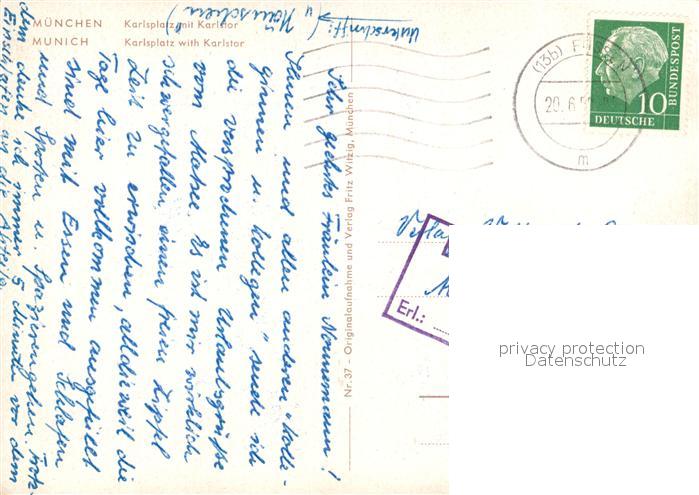 MÜNCHEN Karlsplatz mit Karlstor
MUNICH Karlsplatz with Karlstor
Unterschrift:
Sehr geehrtes Fräulein
Ihnen und allen anderen "Kolle-
ginnen u. Kollegen" sende ich
die versprochenen Urlaubsgrüße
vom Es ist mir wirklich
schwergefallen einen freien Zipfel
Zeit zu erwischen, alldieweil die
Tage hier vollkommen ausgefüllt
sind mit Essen und Schlafen
und u. Spazierengehen. Trotz-
dem denke ich immer 5 Minuten vor dem
Einschlafen an die
Nr. 37 - Originalaufnahme und Verlag Fritz Witzig, München
(13b)
20. 6. 5
m
10
DEUTSCHE
BUNDESPOST
Erl.:
privacy protection
Datenschutz